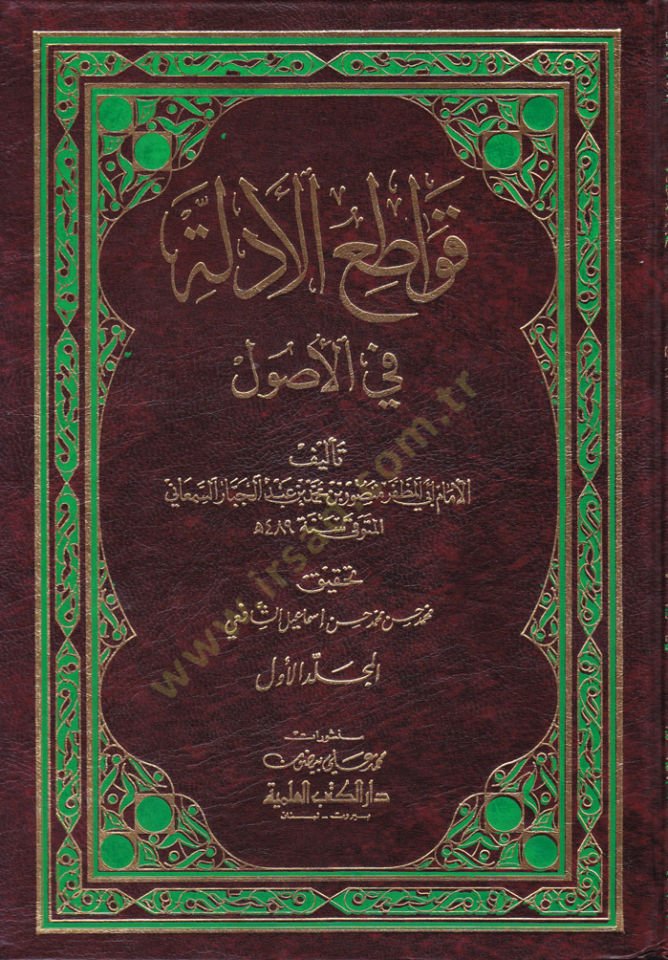 قواطع الأدلة
في الأصول
تأليف
الإمام أبي المظفر منصور بن محمد بن عبد الجبار السمعاني
المتوفى سنة ٤٨٩ هـ
تحقيق
محمد حسن محمد حسن اسماعيل الشافعي
المجلد الأول
منشورات
محمد علي بيضون
دار الكتب العلمية
بيروت - لبنان
www.irsad.com.tr